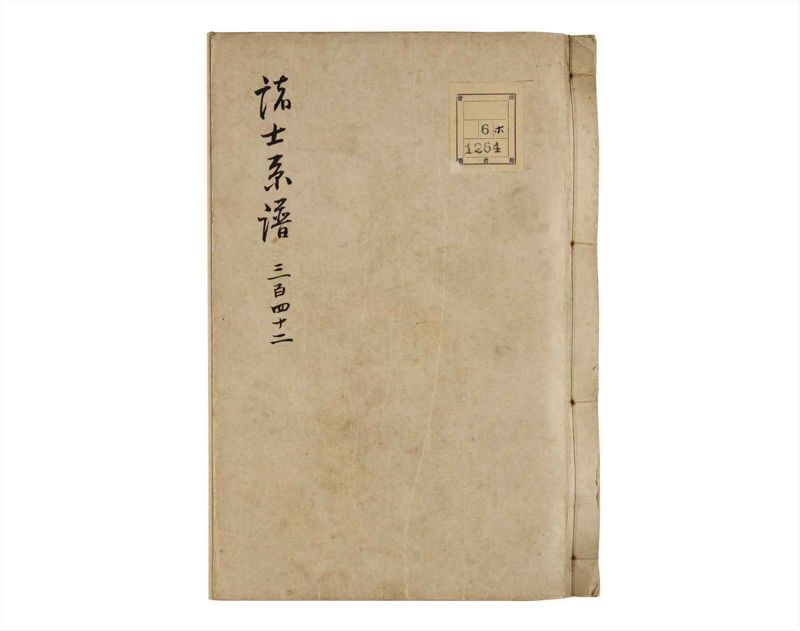 諸士系譜 三百四十二
6 ホ
1264